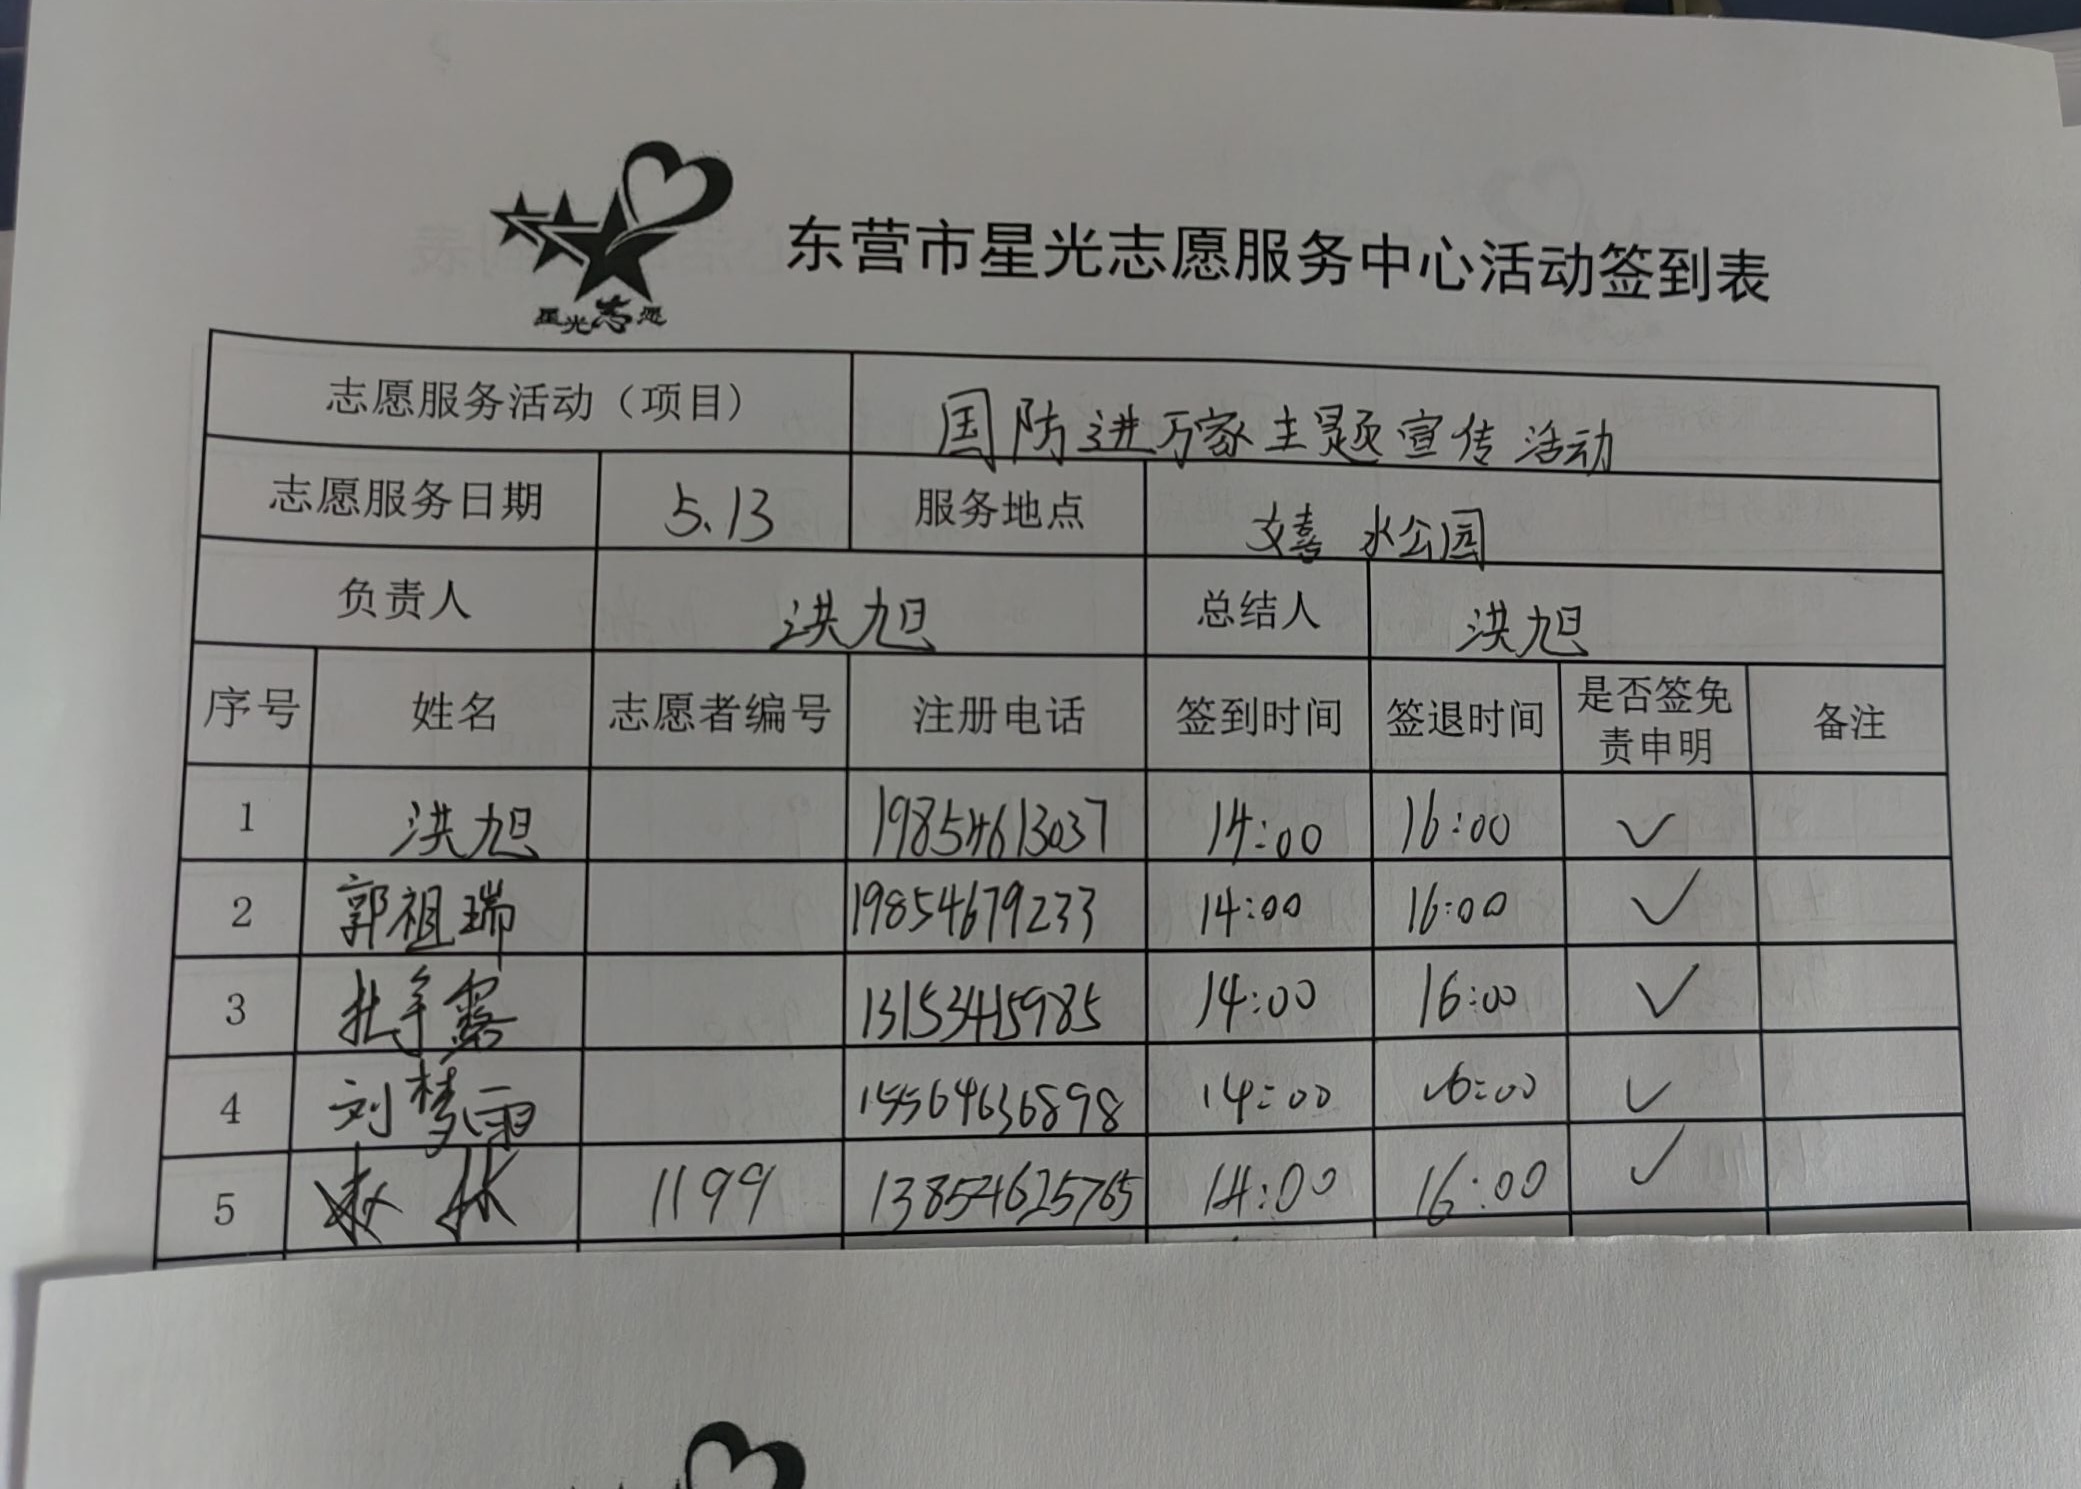 星光志愿
东营市星光志愿服务中心活动签到表
志愿服务活动（项目） 国防进万家主题宣传活动
志愿服务日期 5.13 服务地点 嬉水公园
负责人 洪旭 总结人 洪旭
序号 姓名 志愿者编号 注册电话 签到时间 签退时间 是否签免责申明 备注
1 洪旭 19854613037 14:00 16:00 ✓
2 郭祖瑞 19854679233 14:00 16:00 ✓
3 13153415985 14:00 16:00 ✓
4 刘梦雨 15564636898 14:00 16:00 ✓
5 1199 13854625765 14:00 16:00 ✓